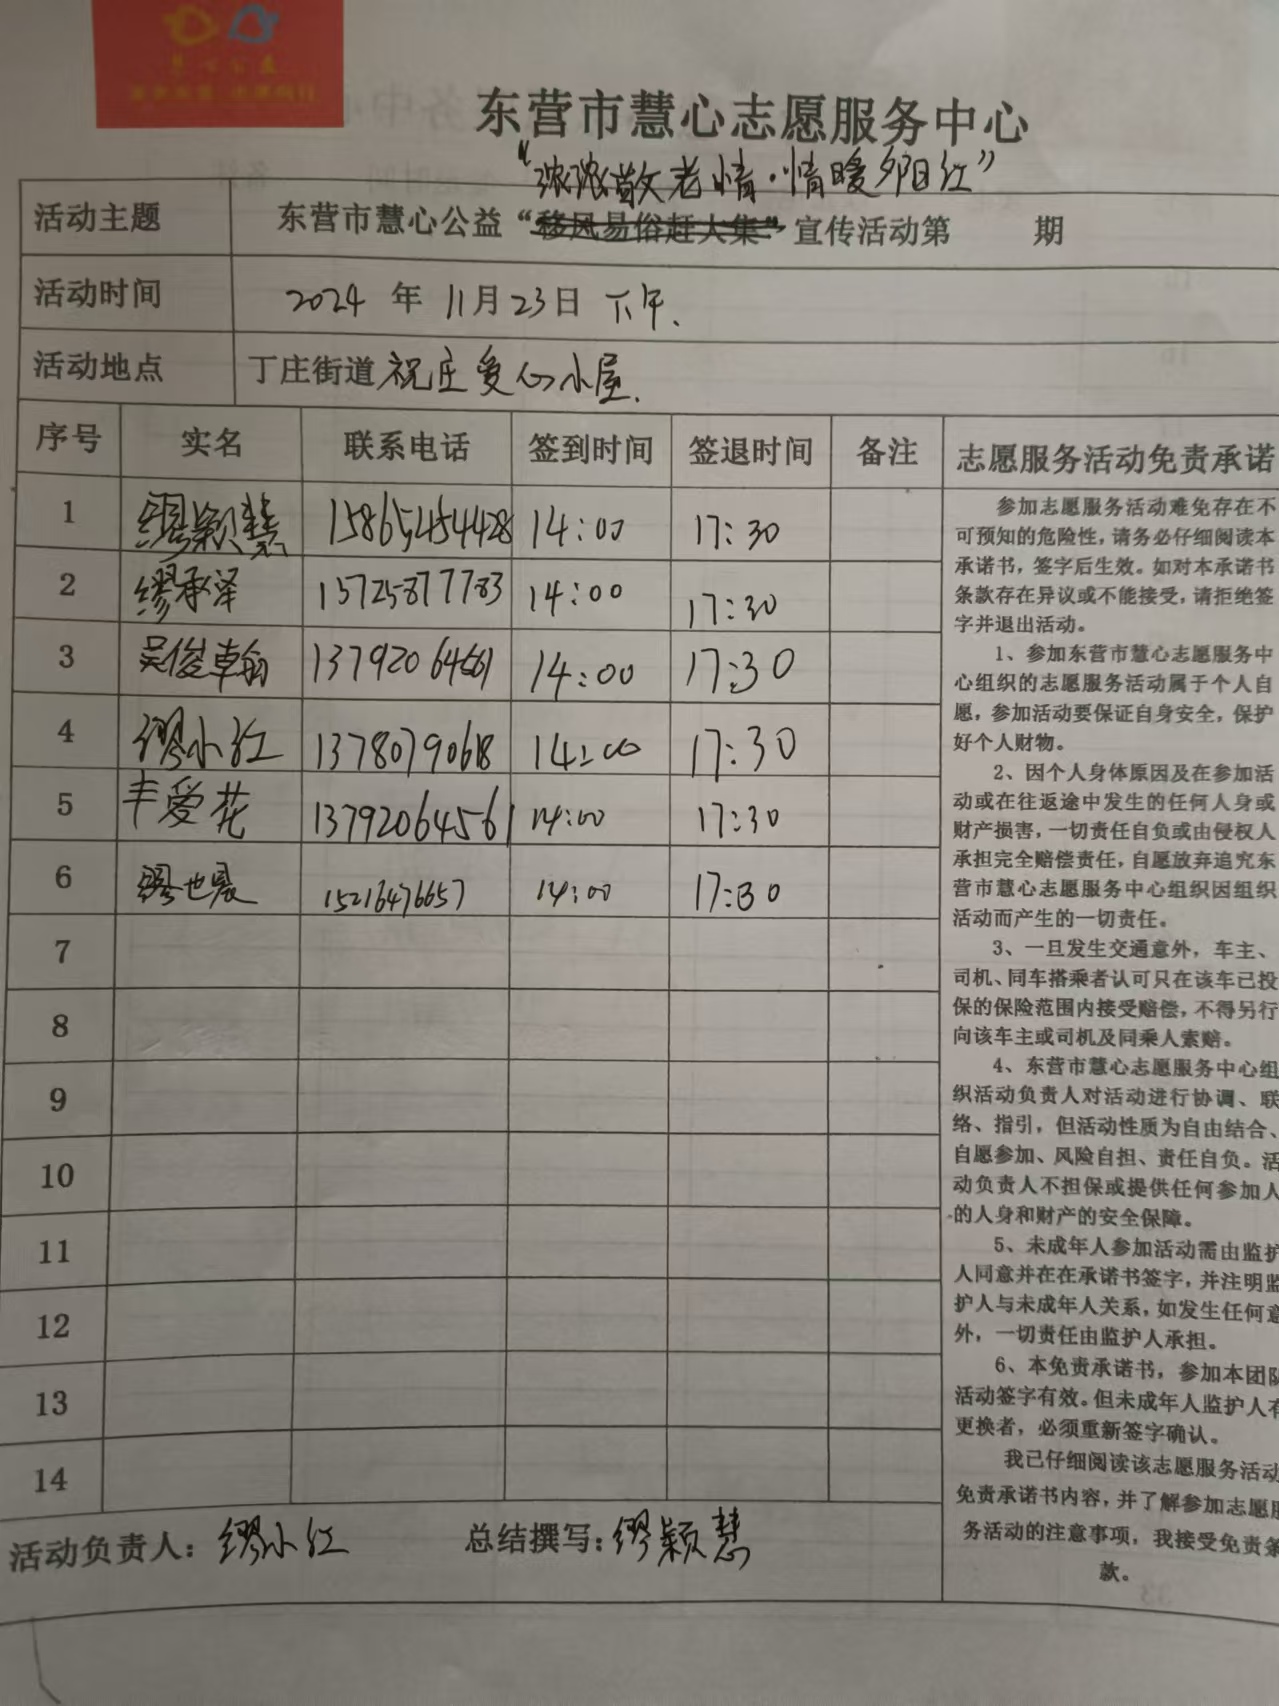 慧心公益
东营市慧心志愿服务中心
“浓浓敬老情·情暖夕阳红”
活动主题 东营市慧心公益“移风易俗赶大集”宣传活动第 期
活动时间 2024 年 11月23日 下午.
活动地点 丁庄街道祝庄爱心小屋.
序号 实名 联系电话 签到时间 签退时间 备注
1 缪颖慧 15865454428 14:00 17:30
2 缪承泽 15725877783 14:00 17:30
3 吴俊卓 14:00 17:30
4 缪小红 13780790618 14:00 17:30
5 丰爱花 13792064561 14:00 17:30
6 缪世晟 15216476657 14:00 17:30
7
8
9
10
11
12
13
14
活动负责人：缪小红 总结撰写：缪颖慧
志愿服务活动免责承诺
参加志愿服务活动难免存在不
可预知的危险性，请务必仔细阅读本
承诺书，签字后生效。如对本承诺书
条款存在异议或不能接受，请拒绝签
字并退出活动。
1、参加东营市慧心志愿服务中
心组织的志愿服务活动属于个人自
愿，参加活动要保证自身安全，保护
好个人财物。
2、因个人身体原因及在参加活
动或在往返途中发生的任何人身或
财产损害，一切责任自负或由侵权人
承担完全赔偿责任，自愿放弃追究东
营市慧心志愿服务中心组织因组织
活动而产生的一切责任。
3、一旦发生交通意外，车主、
司机、同车搭乘者认可只在该车已投
保的保险范围内接受赔偿，不得另行
向该车主或司机及同乘人索赔。
4、东营市慧心志愿服务中心组
织活动负责人对活动进行协调、联
络、指引，但活动性质为自由结合、
自愿参加、风险自担、责任自负。活
动负责人不担保或提供任何参加人
的人身和财产的安全保障。
5、未成年人参加活动需由监护
人同意并在在承诺书签字，并注明监
护人与未成年人关系，如发生任何意
外，一切责任由监护人承担。
6、本免责承诺书，参加本团队
活动签字有效。但未成年人监护人有
更换者，必须重新签字确认。
我已仔细阅读该志愿服务活动
免责承诺书内容，并了解参加志愿服
务活动的注意事项，我接受免责条
款。